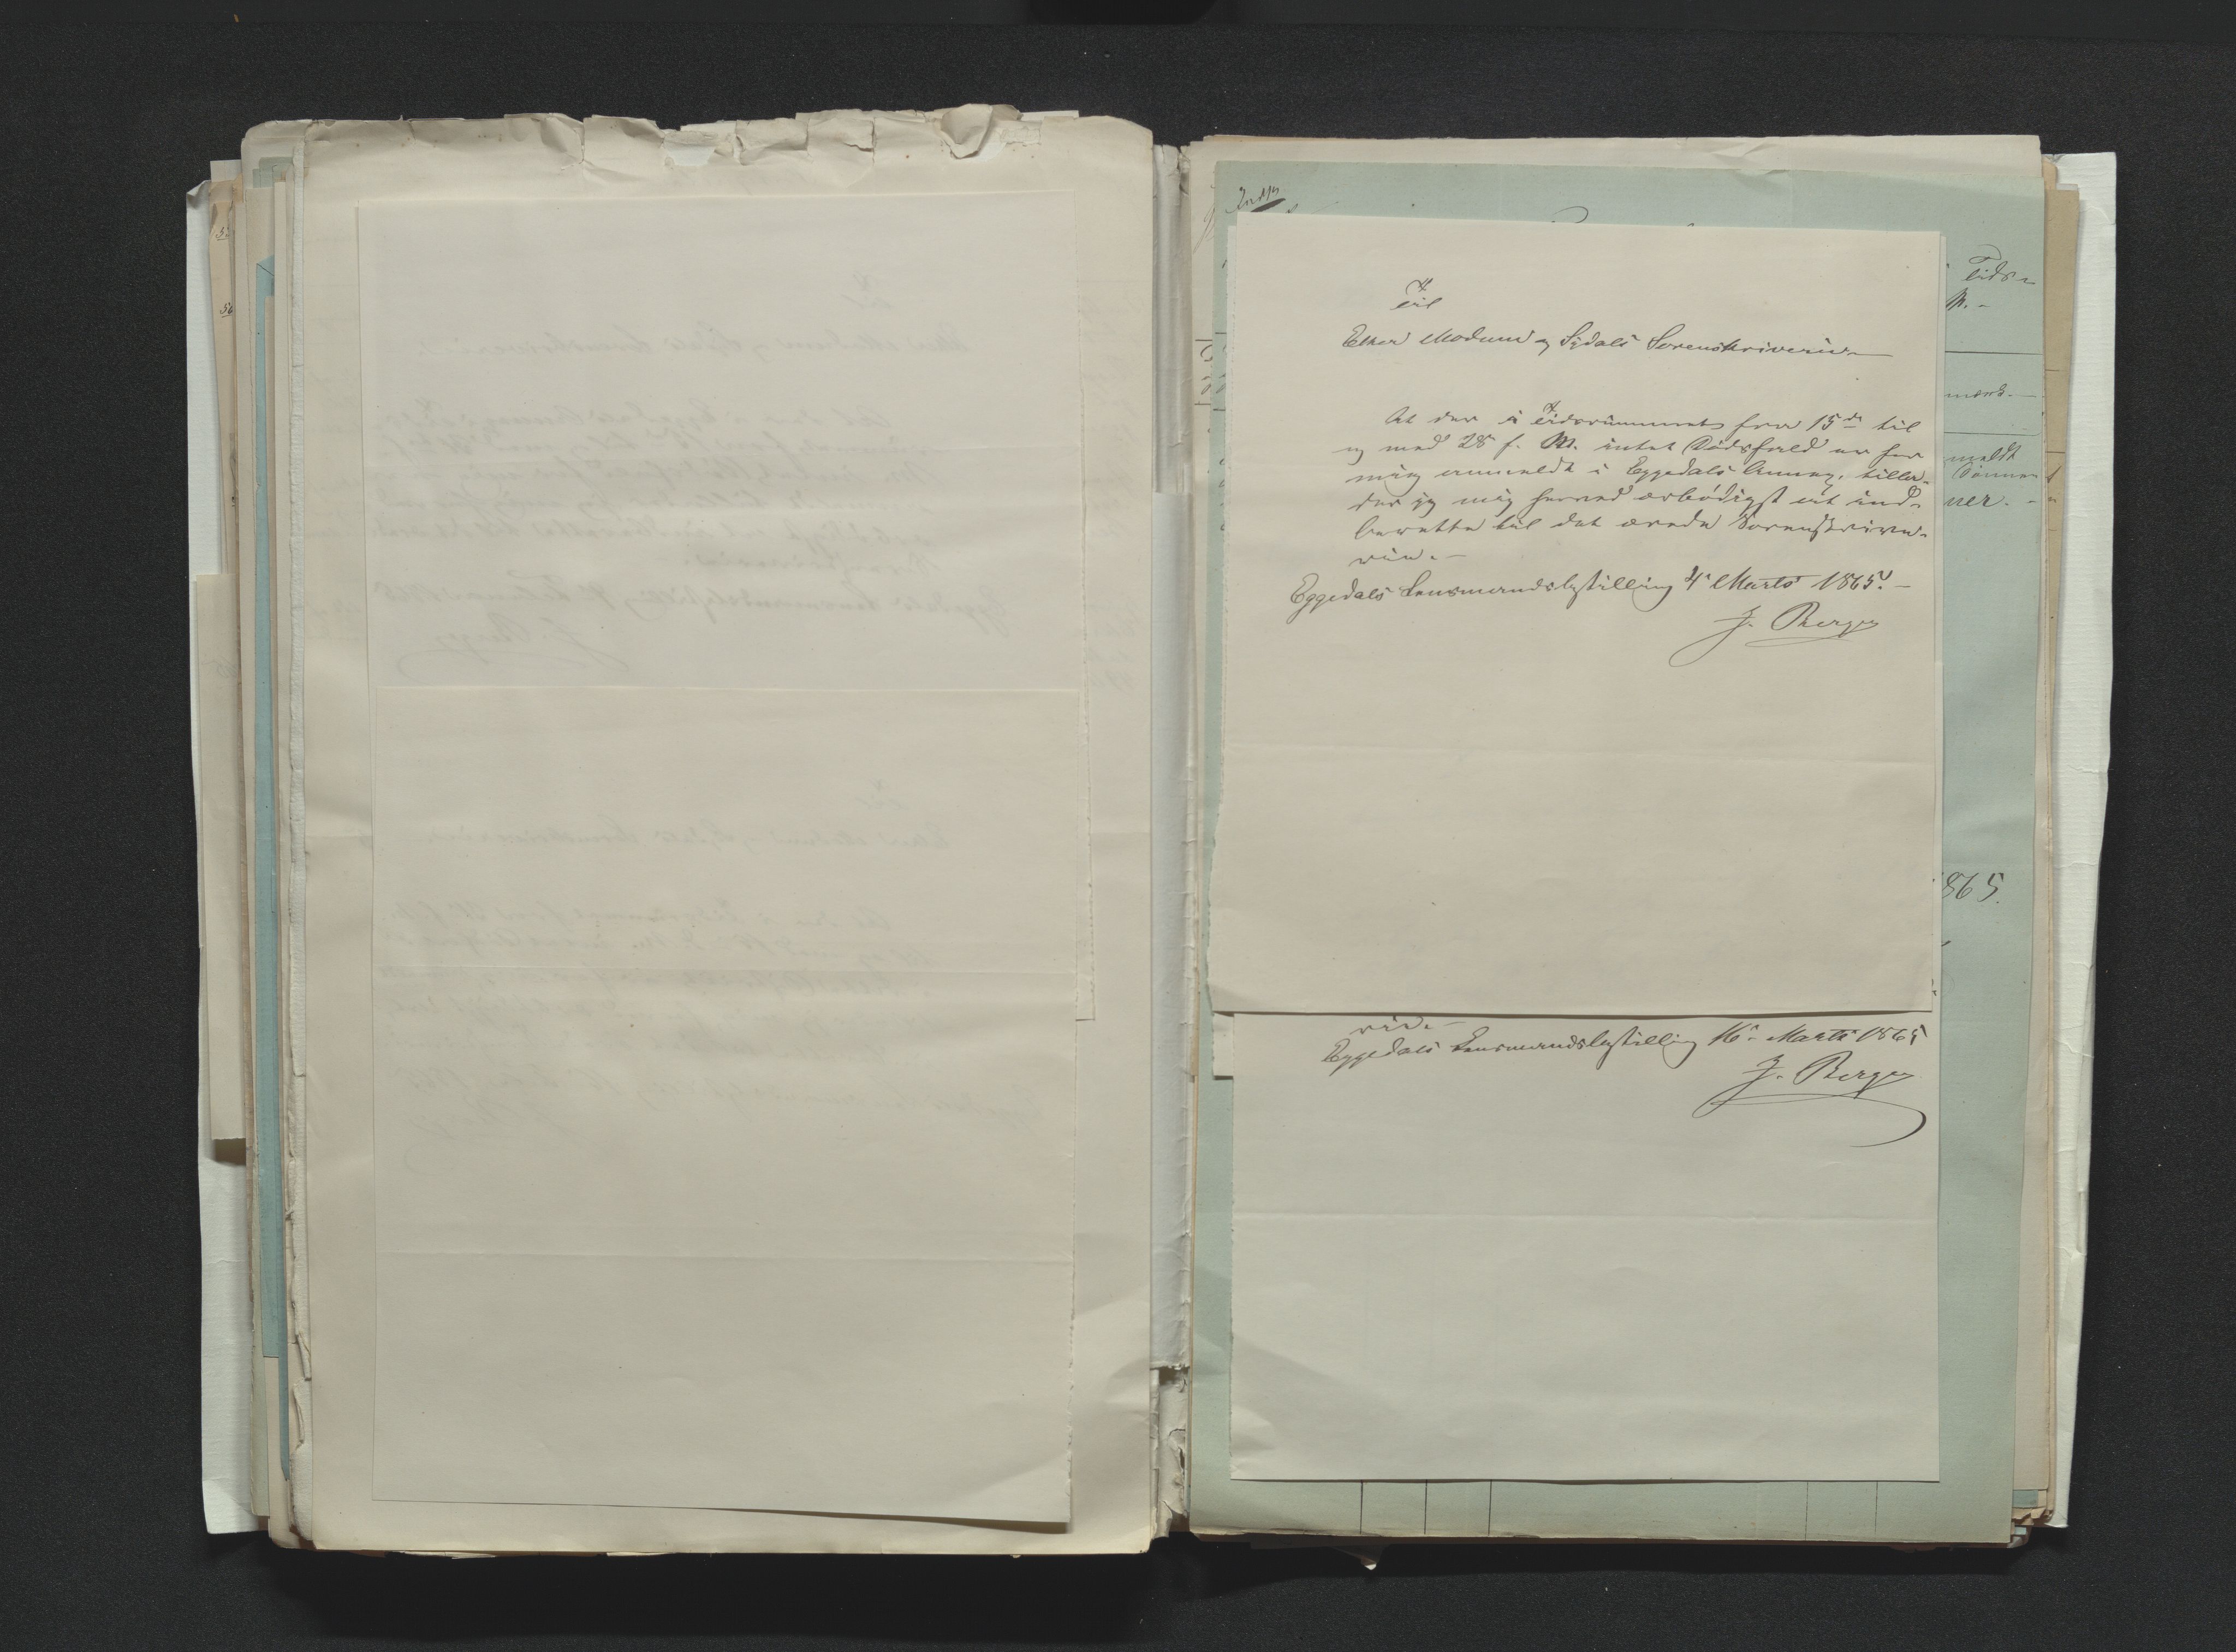 Til
Eker Modum og Sigdals Sorenskriveri
At der i Tidsrummet fra 15de til
og med 28 f. M. intet Dødsfald er for
mig anmeldt i Eggedals Annex, tilla-
der jeg mig herved ærbødigst at ind-
berette til det ærede Sorenskrive-
rie.-
Eggedals Lensmandsbestilling 4 Marts 1865.-
J. Berger
rie.-
Eggedals Lensmandsbestilling 16 Marts 1865
J. Berger
Tids-
M. -
mærk.-
meldt
865.